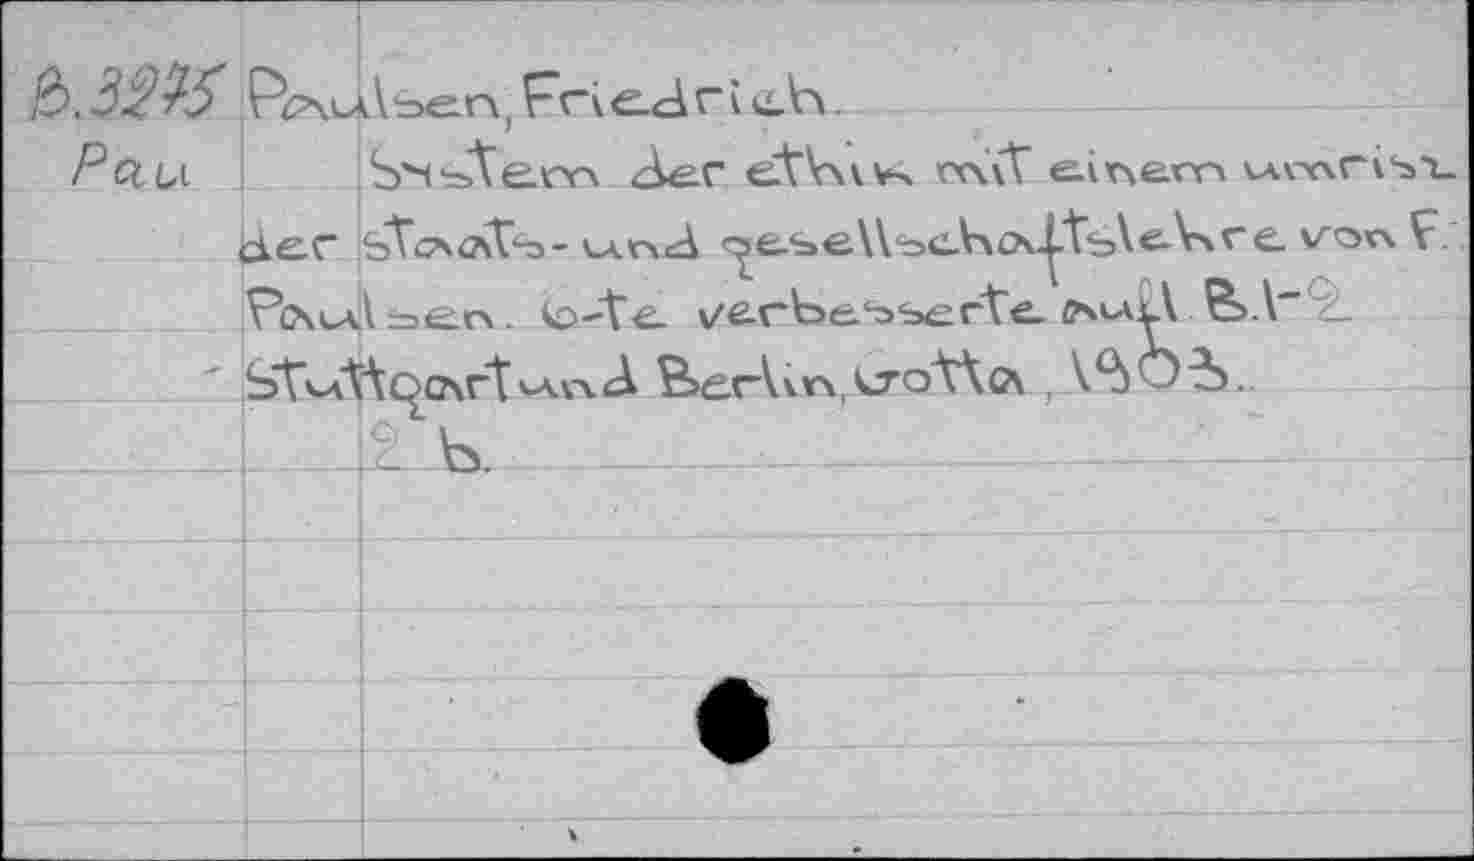 B.3275 Paulsen, Friedrich.
Pau System der ethik mit einem umriss
der staats- und gesellschaftslehre von F.
Paulsen. 6-te verbesserte aufl B.1-2
Stuttgart und Berlin, Cotta, 1903.
2 b.